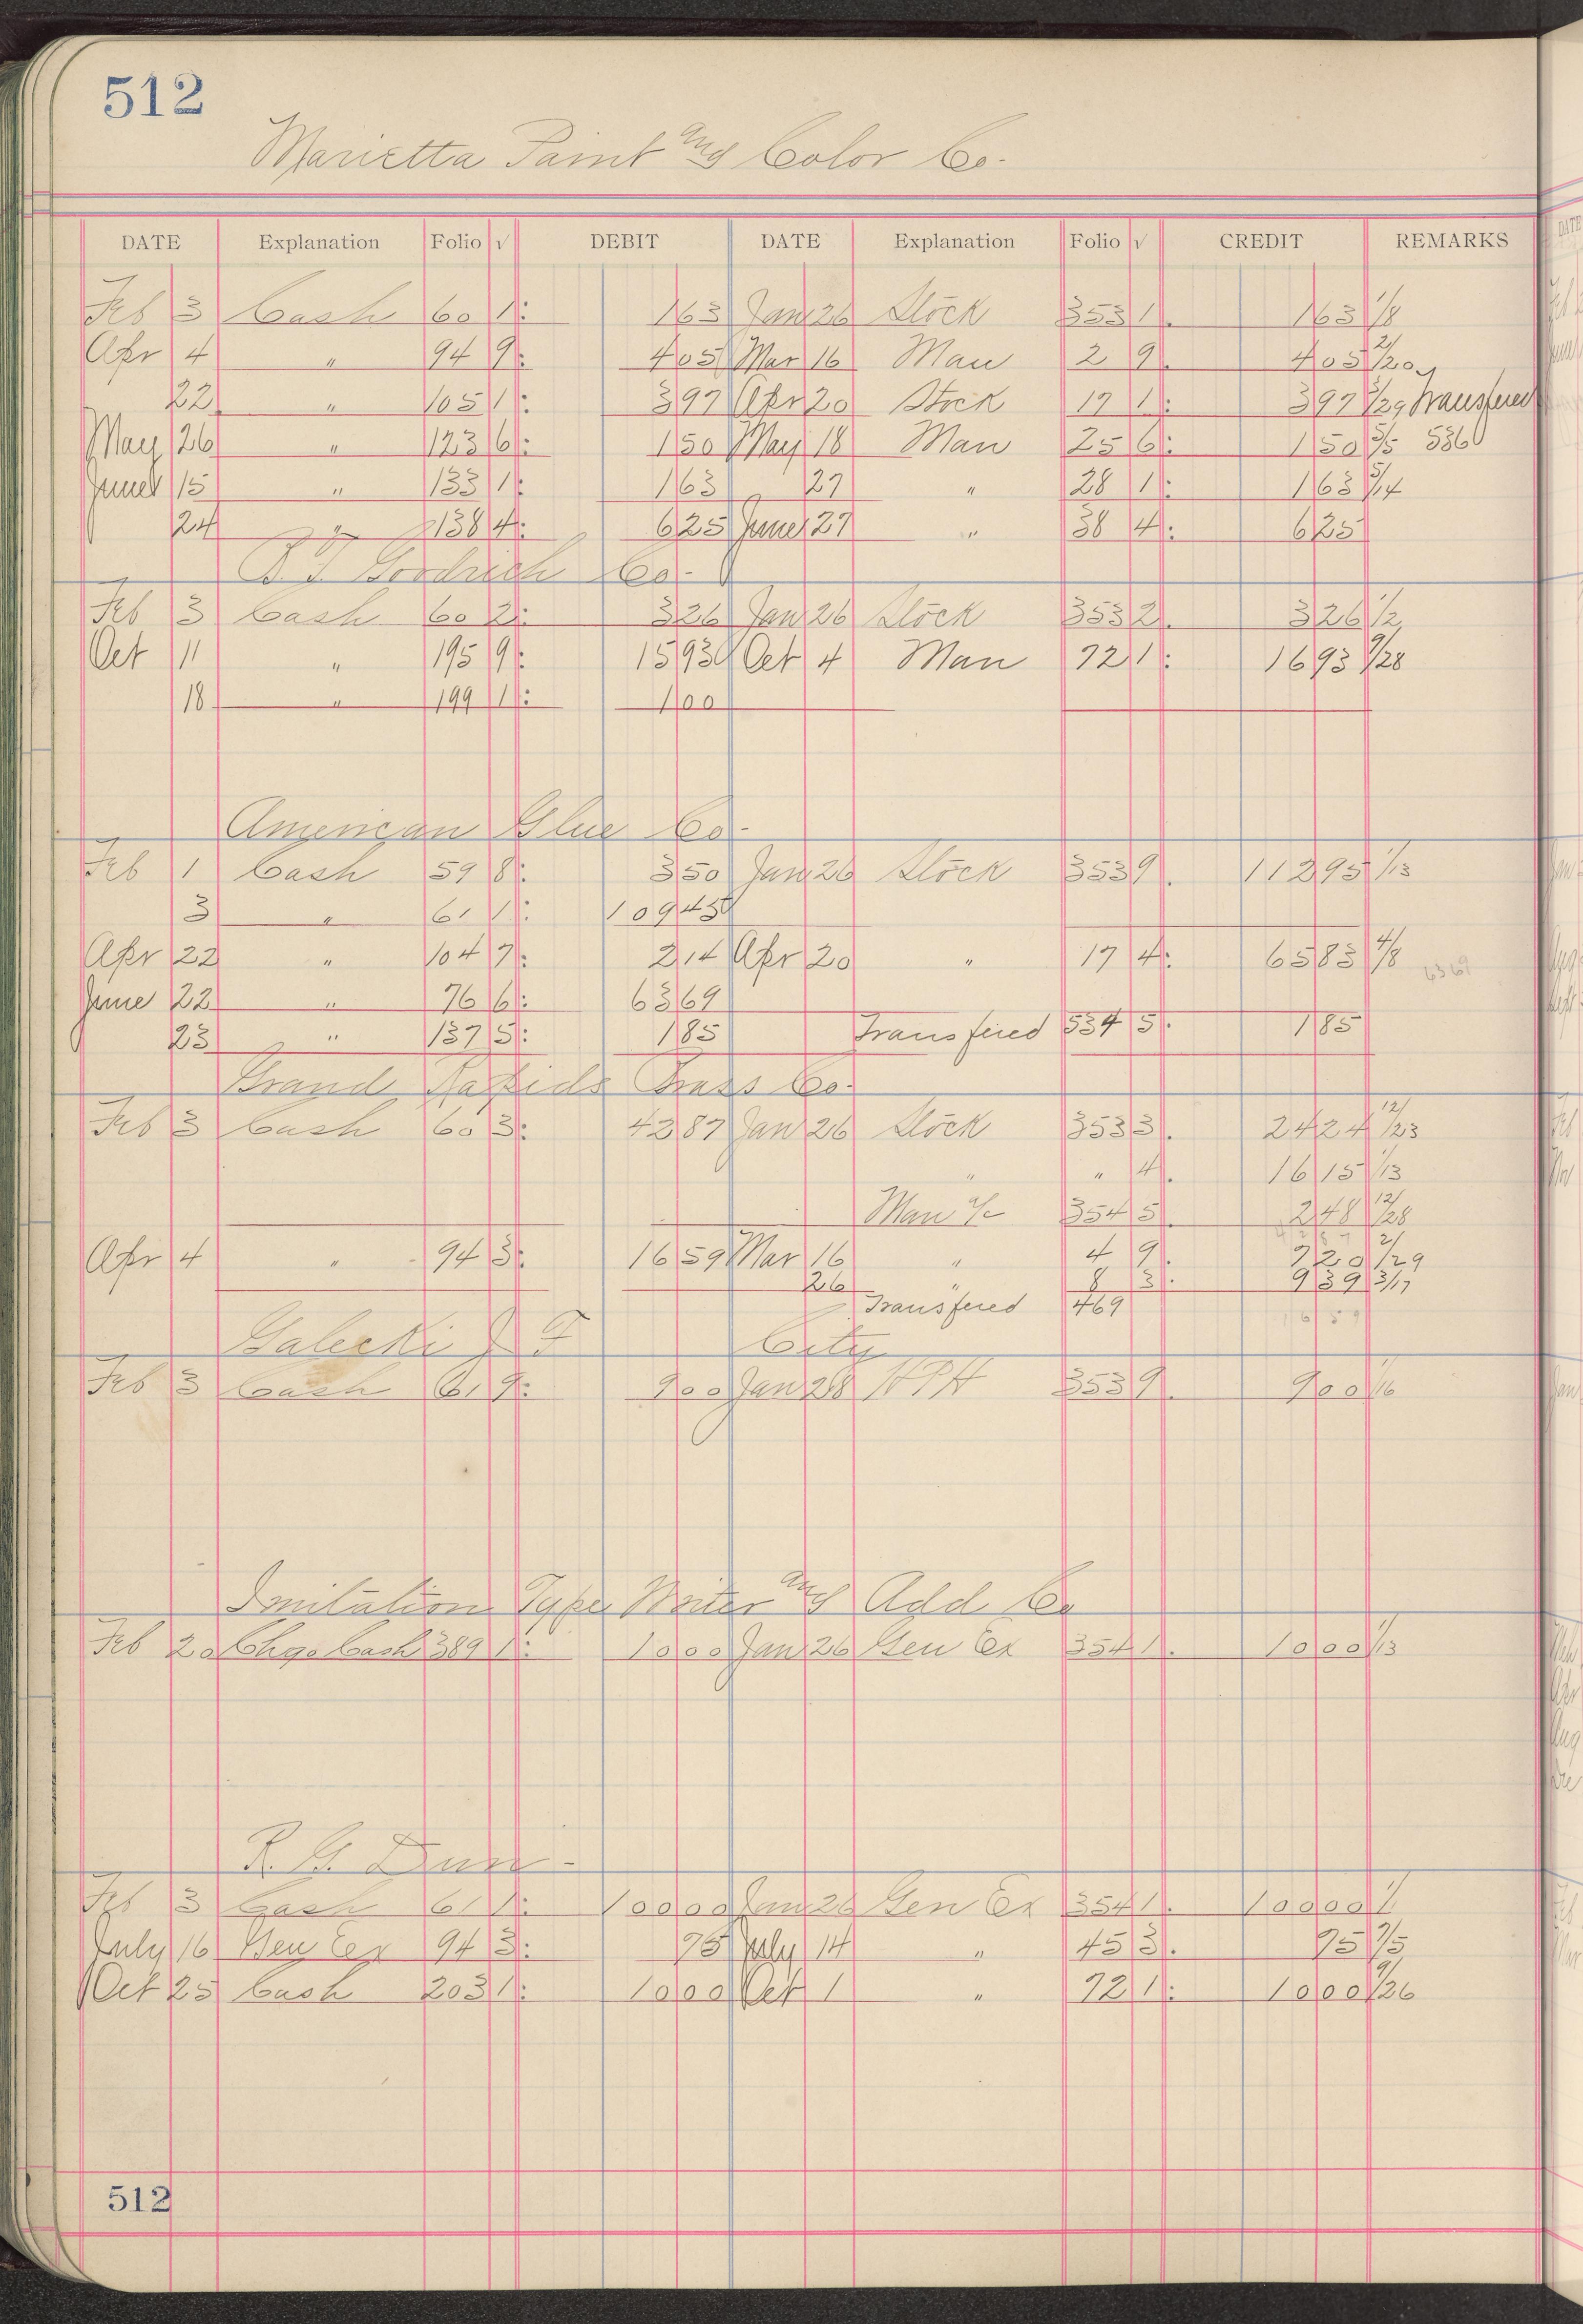 512
Marietta Paint and Color Co-
DATE Explanation Folio √ DEBIT DATE Explanation Folio √ CREDIT REMARKS
Feb 3 Cash 60 1: 163 Jan 26 Stock 353 1. 163 1/8
Apr 4 " 94 9: 405 Mar 16 Man 2 9. 405 2/20
22 " 105 1: 397 Apr 20 Stock 17 1: 397 3/29 Transfered
May 26 " 123 6: 150 May 18 Man 25 6: 150 5/5 536
June 15 " 133 1: 163 27 " 28 1: 163 5/14
24 " 138 4: 625 June 27 " 38 4: 625
B. F. Goodrich Co-
Feb 3 Cash 60 2: 326 Jan 26 Stock 353 2. 326 1/2
Oct 11 " 195 9: 1593 Oct 4 Man 72 1: 1693 9/28
18 " 199 1: 100
American Glue Co-
Feb 1 Cash 59 8: 350 Jan 26 Stock 353 9. 11295 1/13
3 " 61 1: 10945
Apr 22 " 104 7: 214 Apr 20 " 17 4: 6583 4/8 6369
June 22 " 76 6: 6369
23 " 137 5: 185 Transfered 534 5: 185
Grand Rapids Brass Co-
Feb 3 Cash 60 3: 4287 Jan 26 Stock 353 3. 2424 12/23
" " 4. 1615 1/13
Man a/c 354 5. 248 12/28
4287
Apr 4 " 94 3: 1659 Mar 16 " 4 9. 720 2/29
26 " 8 3: 939 3/17
Transfered 469 1659
Galecki J F City
Feb 3 Cash 61 9: 900 Jan 28 HPH 353 9. 900 1/16
Imitation Type Writer and Add Co
Feb 20 Chgo Cash 389 1: 1000 Jan 26 Gen Ex 354 1. 1000 1/13
R. G. Dun-
Feb 3 Cash 61 1: 10000 Jan 26 Gen Ex 354 1. 10000 1/1
July 16 Gen Ex 94 3: 75 July 14 " 45 3. 75 7/5
Oct 25 Cash 203 1: 1000 Oct 1 " 72 1: 1000 9/26
512